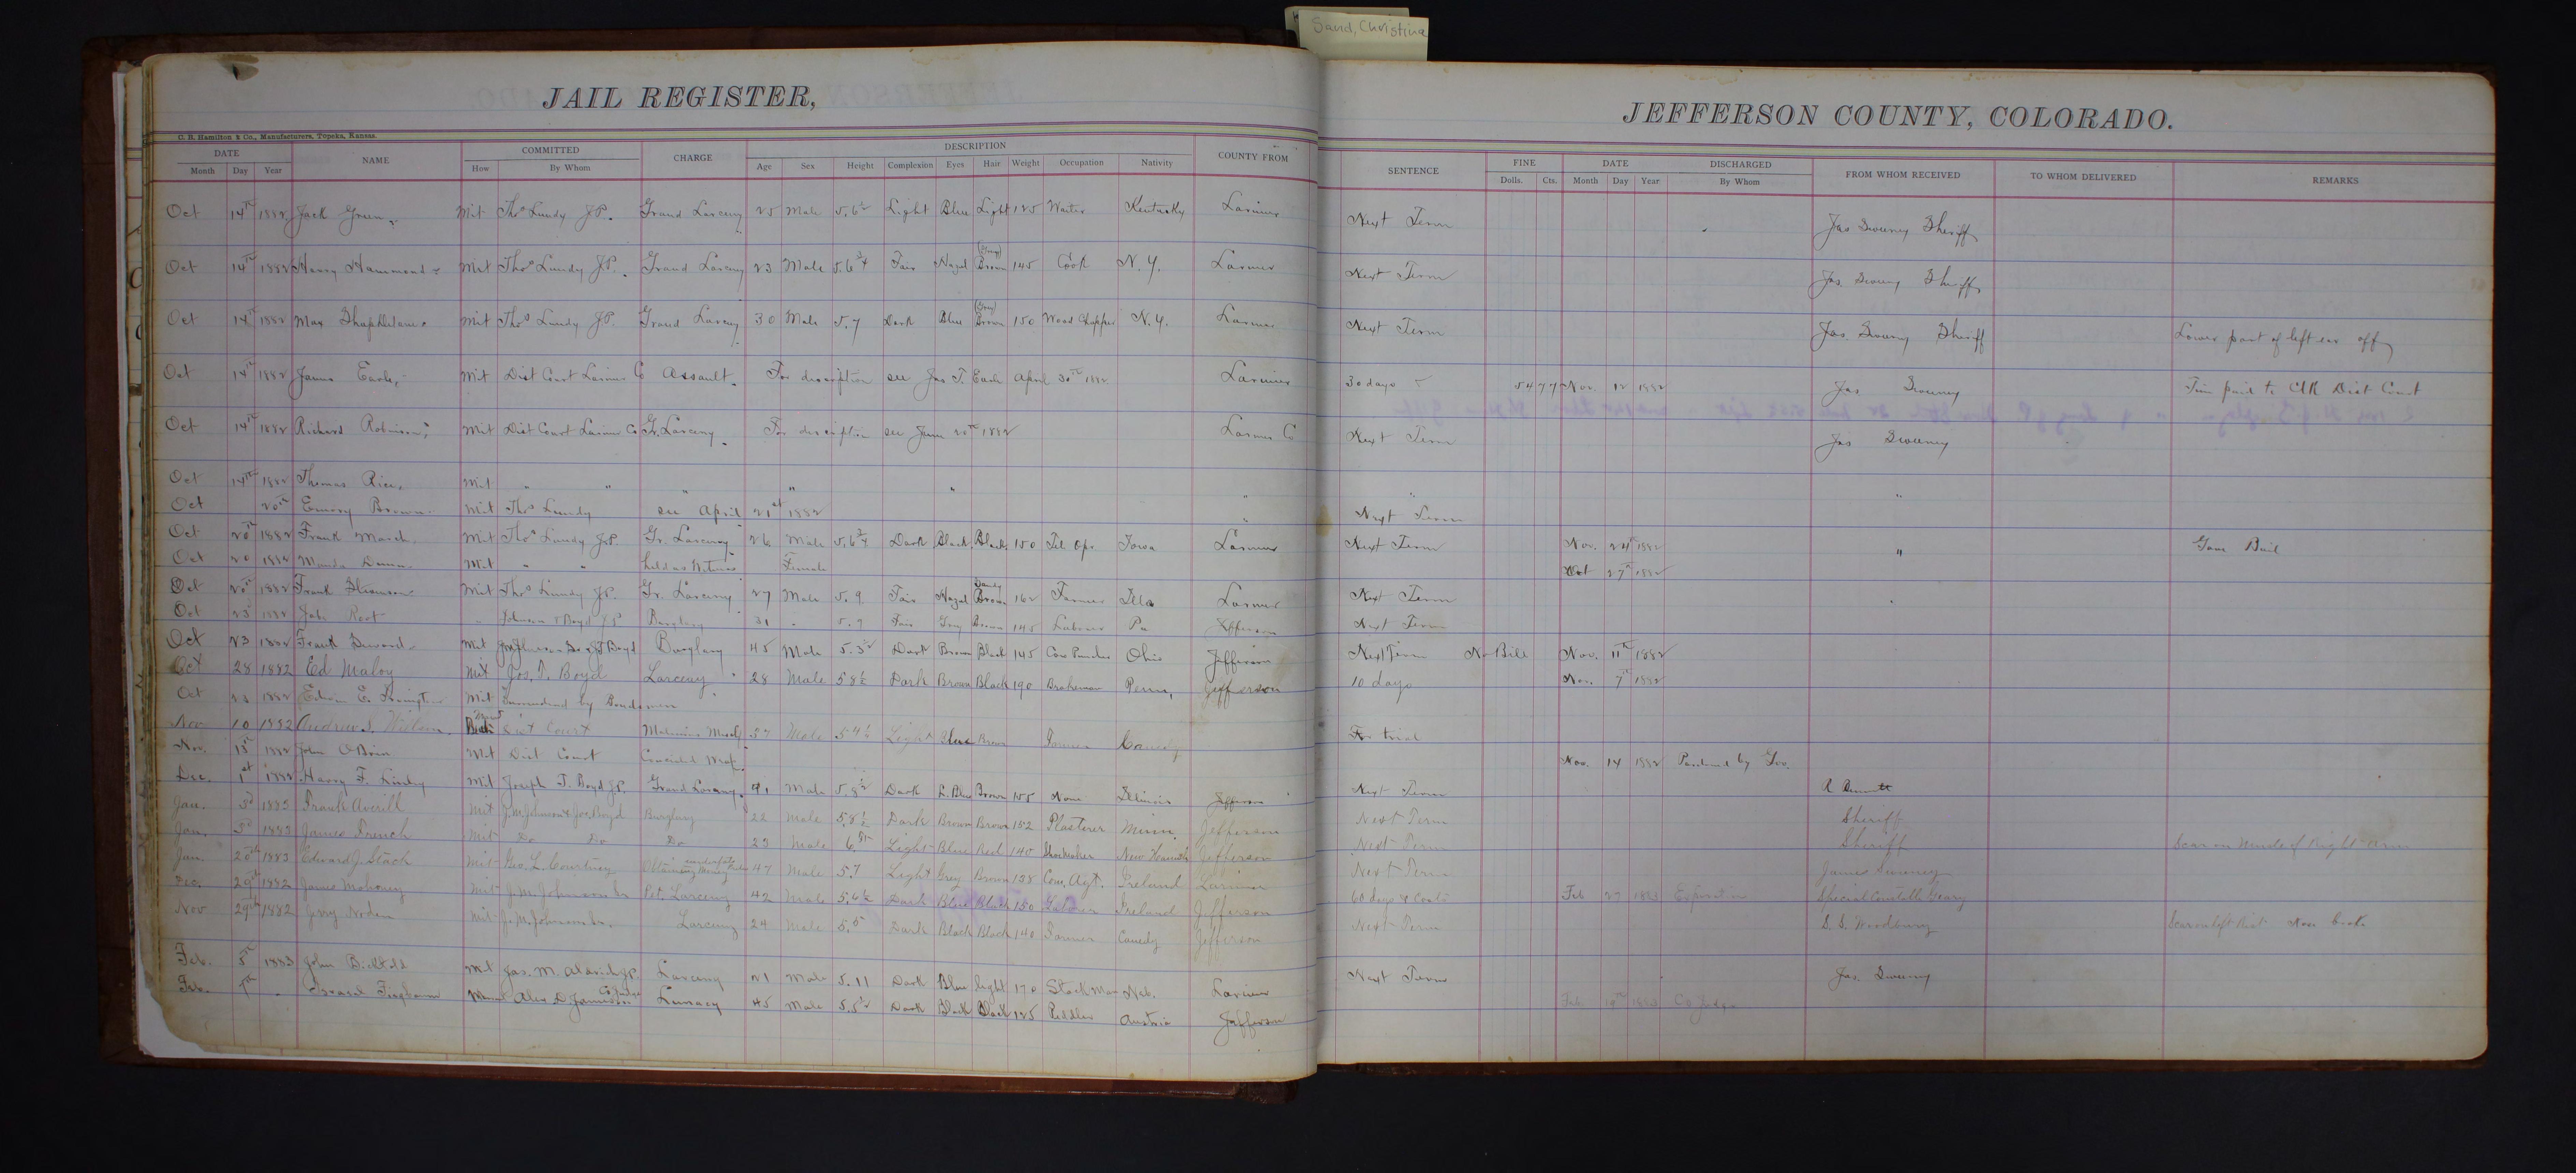 Sand, Christina
JAIL REGISTER,
JEFFERSON COUNTY, COLORADO.
C. B. Hamilton & Co., Manufacturers, Topeka, Kansas.
DATE NAME COMMITTED CHARGE DESCRIPTION COUNTY FROM SENTENCE FINE DATE DISCHARGED FROM WHOM RECEIVED TO WHOM DELIVERED REMARKS
Month Day Year How By Whom Age Sex Height Complexion Eyes Hair Weight Occupation Nativity Dolls. Cts. Month Day Year By Whom
Oct 14th 1882 Jack Green Mit Thos Lundy J.P. Grand Larceny 25 Male 5.6½ Light Blue Light 125 Waiter Kentucky Larimer Next Term Jas Sweeney Sheriff
(Gray)
Oct 14th 1882 Harry Hammond Mit Thos Lundy J.P. Grand Larceny 23 Male 5.6¾ Fair Hazel Brown 145 Cook N.Y. Larimer Next Term Jas. Sweeney Sheriff
(Gray)
Oct 14th 1882 Max Mit Thos Lundy J.P. Grand Larceny 30 Male 5.7 Dark Blue Brown 150 Wood Chopper N.Y. Larimer Next Term Jas. Sweeney Sheriff Lower part of left ear off
Oct 14th 1882 James Earle Mit Dist Court Larimer Co Assault. For description see Jas T. Earle April 30th 1882 Larimer 30 days 54 77 Nov. 12 1882 Jas Sweeney paid to Clk Dist Court
Oct 14th 1882 Richard Robinson Mit Dist Court Larimer Co Gr. Larceny For description see June 20th 1882 Larimer Co Next Term Jas Sweeney
Oct 14th 1882 Thomas Rice Mit " " " " " " " "
Oct 20th Emory Brown Mit Thos Lundy see April 21st 1882 " Next Term
Oct 20th 1882 Frank March Mit Thos Lundy J.P. Gr. Larceny 26 Male 5.6¾ Dark Black Black 150 Tel Opr Iowa Larimer Next Term Nov. 24th 1882 " Gave Bail
Oct 20 1882 Mit " " held as Witness Female Oct 27th 1882
Sandy
Oct 20th 1882 Frank Mit Thos Lundy J.P. Gr. Larceny 27 Male 5.9 Fair Hazel Brown 162 Farmer Ills Larimer Next Term
Oct 23d 1882 Root " Johnson & Boyd J P Burglary 31 " 5.9 Fair Gray Brown 145 Laborer Pa Jefferson Next Term
Oct 23 1882 Frank Mit Boyd Burglary 45 Male 5.3½ Dark Brown Black 145 Cow Puncher Ohio Jefferson Next Term No Bill Nov. 11th 1882
Oct 28 1882 Ed Maloy Mit Jos. T. Boyd Larceny 28 Male 5 8½ Dark Brown Black 190 Brakeman Penn. Jefferson 10 days Nov. 7th 1882
Oct 1882 E. Mit Surrendered by Bondsmen
Nov 10 1882 Andrew J. Wilson Dist Court 37 Male 5 4½ Light Blue Brown Farmer For trial
Nov. 13th 1882 John O'Brien Mit Dist Court Nov. 14 1882 Pardoned by Gov.
Dec. 1st 1882 Harry F. Mit Joseph T. Boyd J.P. Grand Larceny Male 5.8½ Dark L. Blue Brown 155 None Illinois Jefferson Next Term
Jan. 3d 1883 Frank Averill Mit J.M. Johnson & Jos. Boyd Burglary 22 Male 5.8½ Dark Brown Brown 152 Plasterer Minn. Jefferson Next Term Sheriff
Jan. 3d 1883 James French Mit Do Do Do 23 Male Light Blue Red 140 Shoemaker Jefferson Next Term Sheriff Scar on inside of Right arm
Jan. 20th 1883 Edward J. Stack Mit Geo. L. Courtney Obtaining Money 47 Male 5.7 Light Grey Brown 138 Com. Agt. Ireland Larimer Next Term James Sweeney
Dec. 29th 1882 James Mahoney Mit J.M. Johnson Pet. Larceny 42 Male 5.6½ Dark Blue Black 150 Ireland Jefferson 60 days & Costs Feb 27 1883 Expiration Special Constable Geary
Nov 29th 1882 Jerry Noden Mit J.M. Johnson Larceny 24 Male 5.5 Dark Black Black 140 Farmer Jefferson Next Term S. S. Woodbury
Feb. 5th 1883 John Mit Jas. M. Aldrich J.P. Larceny 21 Male 5.11 Dark Blue light 170 Stock Man Neb. Larimer Next Term Jas. Sweeney
Feb. Alex D Jameson Co Judge Lunacy 45 Male 5.5½ Dark Black Black 125 Peddler Austria Jefferson Feb. 19th 1883 Co Judge